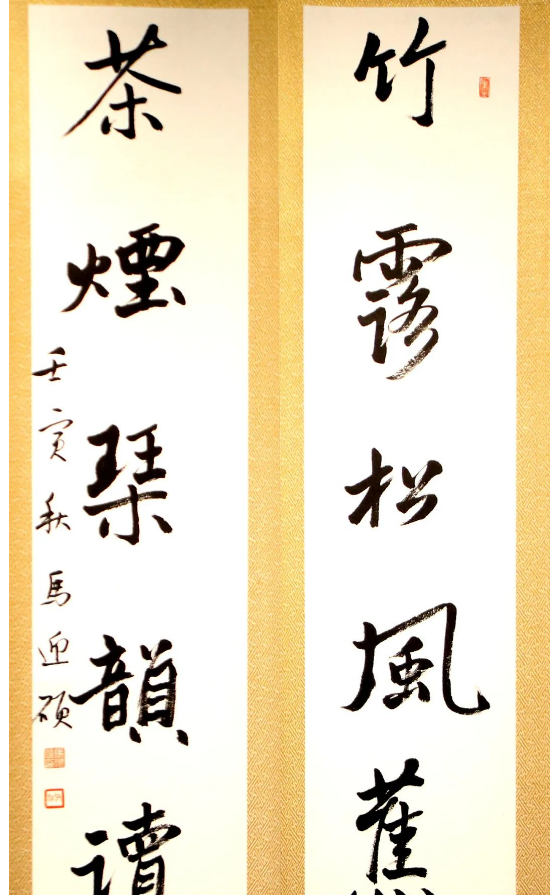 竹露松風蕉
茶煙琹韻讀
壬寅秋馬迎碩